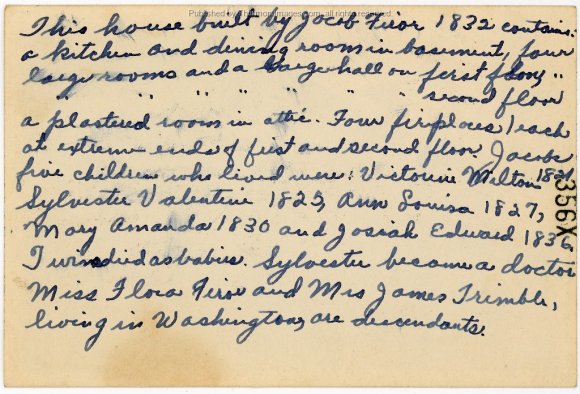 Published by Thurmontimages.com - all rights reserved
This house built by Jacob Firor 1832 contains:
a kitchen and dining room in basement, four
large rooms and a large hall on first floor,
" " " " " " " second floor
a plastered room in attic. Four fireplaces 1 each
at extreme ends of first and second floor. Jacobs
five children who lived were: Victorine Melton 1821
Sylvester Valentine 1825, Ann Louisa 1827,
Mary Amanda 1830 and Josiah Edward 1836.
Twins died as babies. Sylvester became a doctor
Miss Flora Firor and Mrs James Trimble,
living in Washington, are descendants.
356X